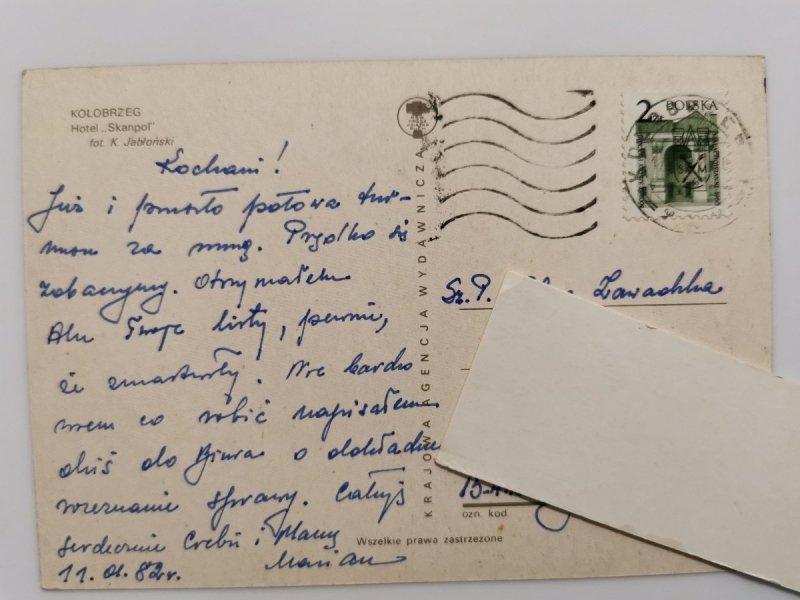 KOŁOBRZEG
Hotel „Skanpol"
fot. K. Jabłoński
Kochani!
Już i przeszło połowa tur-
nusu za mną. Prędko się
zobaczymy. Otrzymałem
Alu Twoje listy, pewnie,
że zmartwiły. Nie bardzo
wiem co robić napisałem
dziś do Biura o dokładne
rozeznanie sprawy. Całuję
serdecznie Ciebie i Mamę
Marian
11.01.82r.
KRAJOWA AGENCJA WYDAWNICZA
2 zł POLSKA
Sz.P. Zawadzka
ozn. kod
Wszelkie prawa zastrzeżone